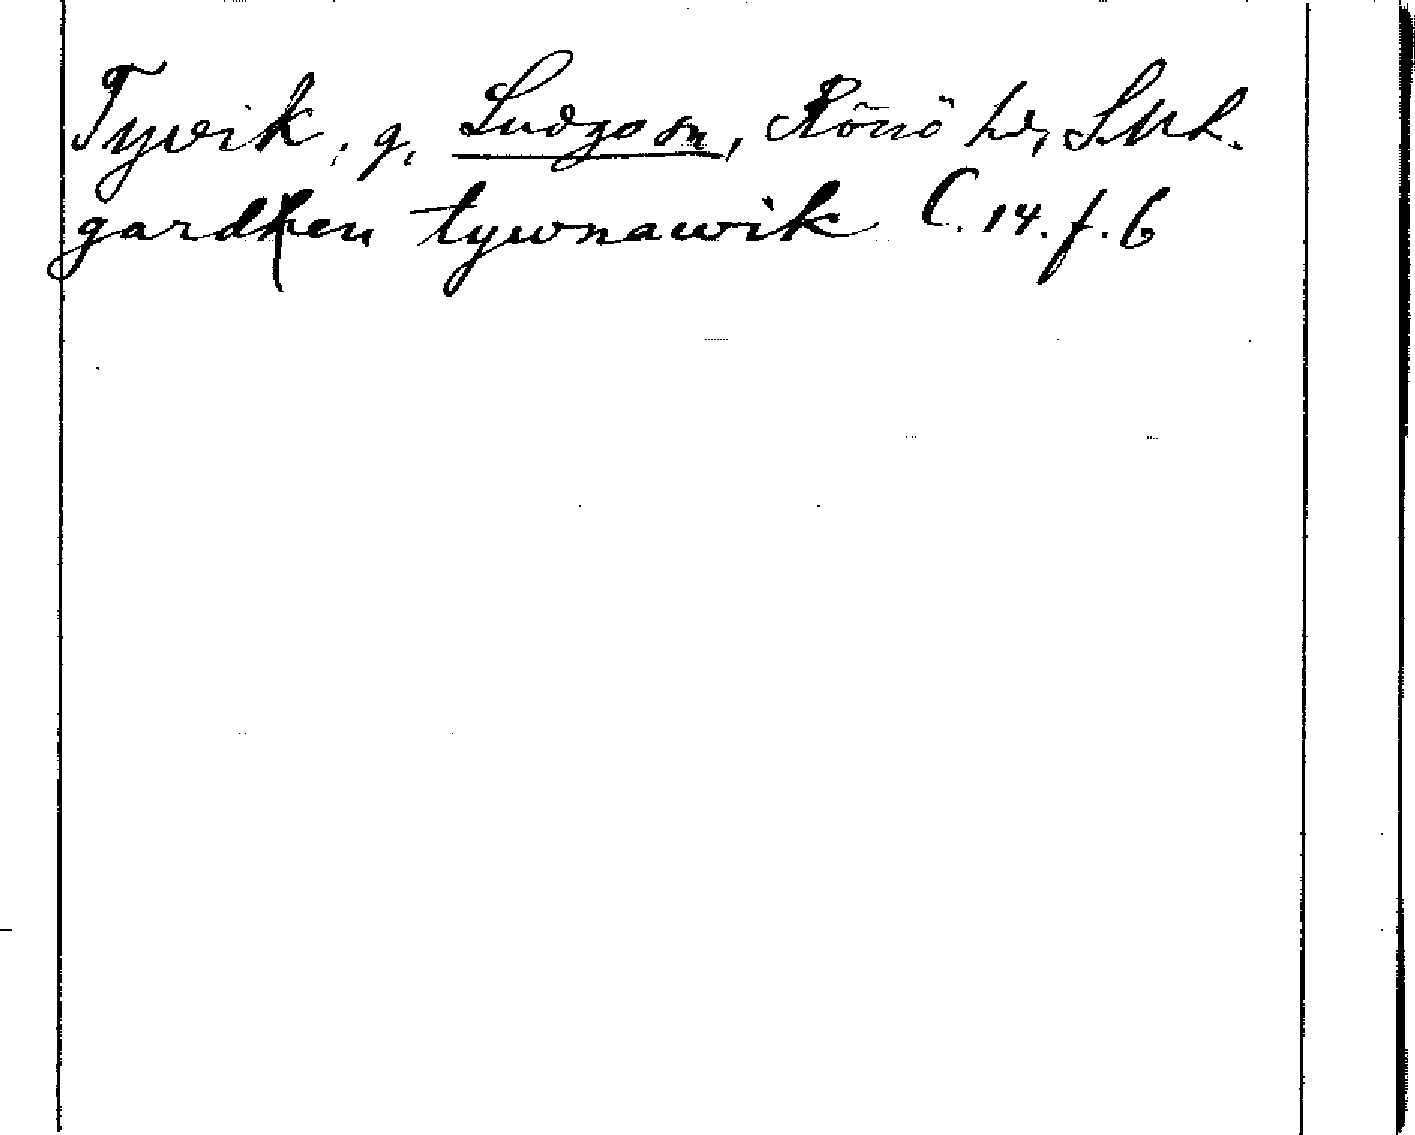 Tyvik, g, Ludgo sn, Rönö hd, Smk.
gardhen tywnawik C. 14. f. 6